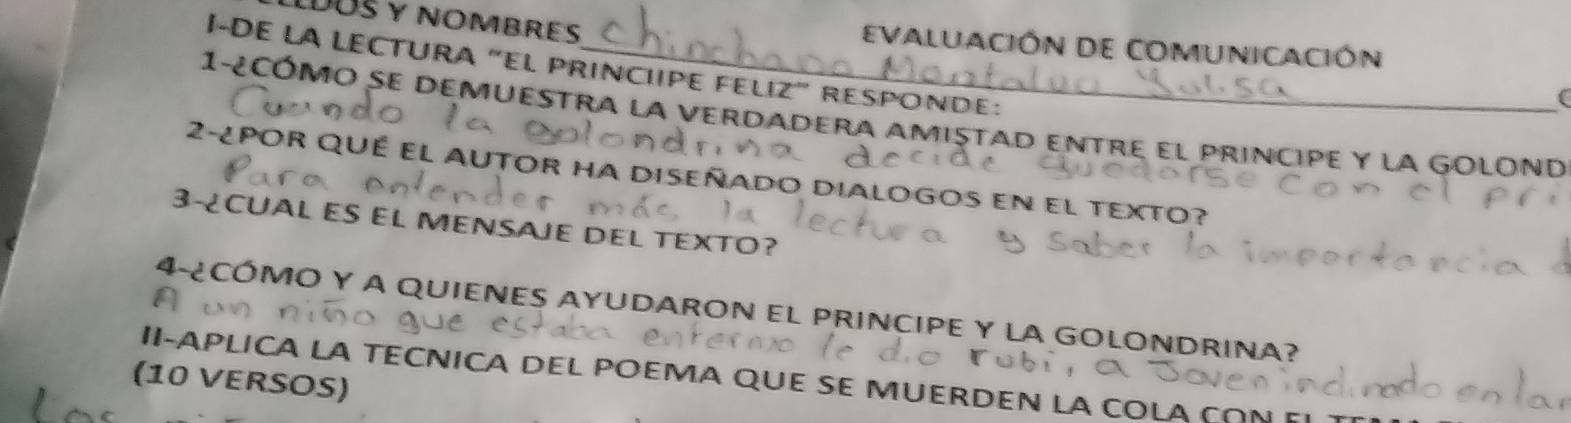 Y NOMBRES Chinchano Montalvo Yulisa
EVALUACIÓN DE COMUNICACIÓN
I-DE LA LECTURA "EL PRINCIIPE FELIZ" RESPONDE:
1-¿CÓMO SE DEMUESTRA LA VERDADERA AMISTAD ENTRE EL PRINCIPE Y LA GOLOND
Cuando la golondrina decide quedarse con el pri
2-¿POR QUÉ EL AUTOR HA DISEÑADO DIALOGOS EN EL TEXTO?
Para entender más la lectura y saber la importancia d
3-¿CUAL ES EL MENSAJE DEL TEXTO?
4-¿CÓMO Y A QUIENES AYUDARON EL PRINCIPE Y LA GOLONDRINA?
A un niño que estaba enfermo le dio rubi, a Joven inclinado en
II-APLICA LA TECNICA DEL POEMA QUE SE MUERDEN LA COLA CON EL
(10 VERSOS)
Los